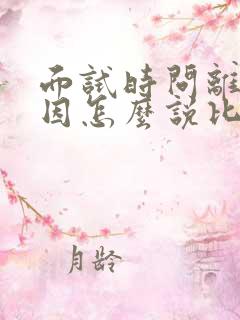 而試時問離
因怎麼說比
月龄